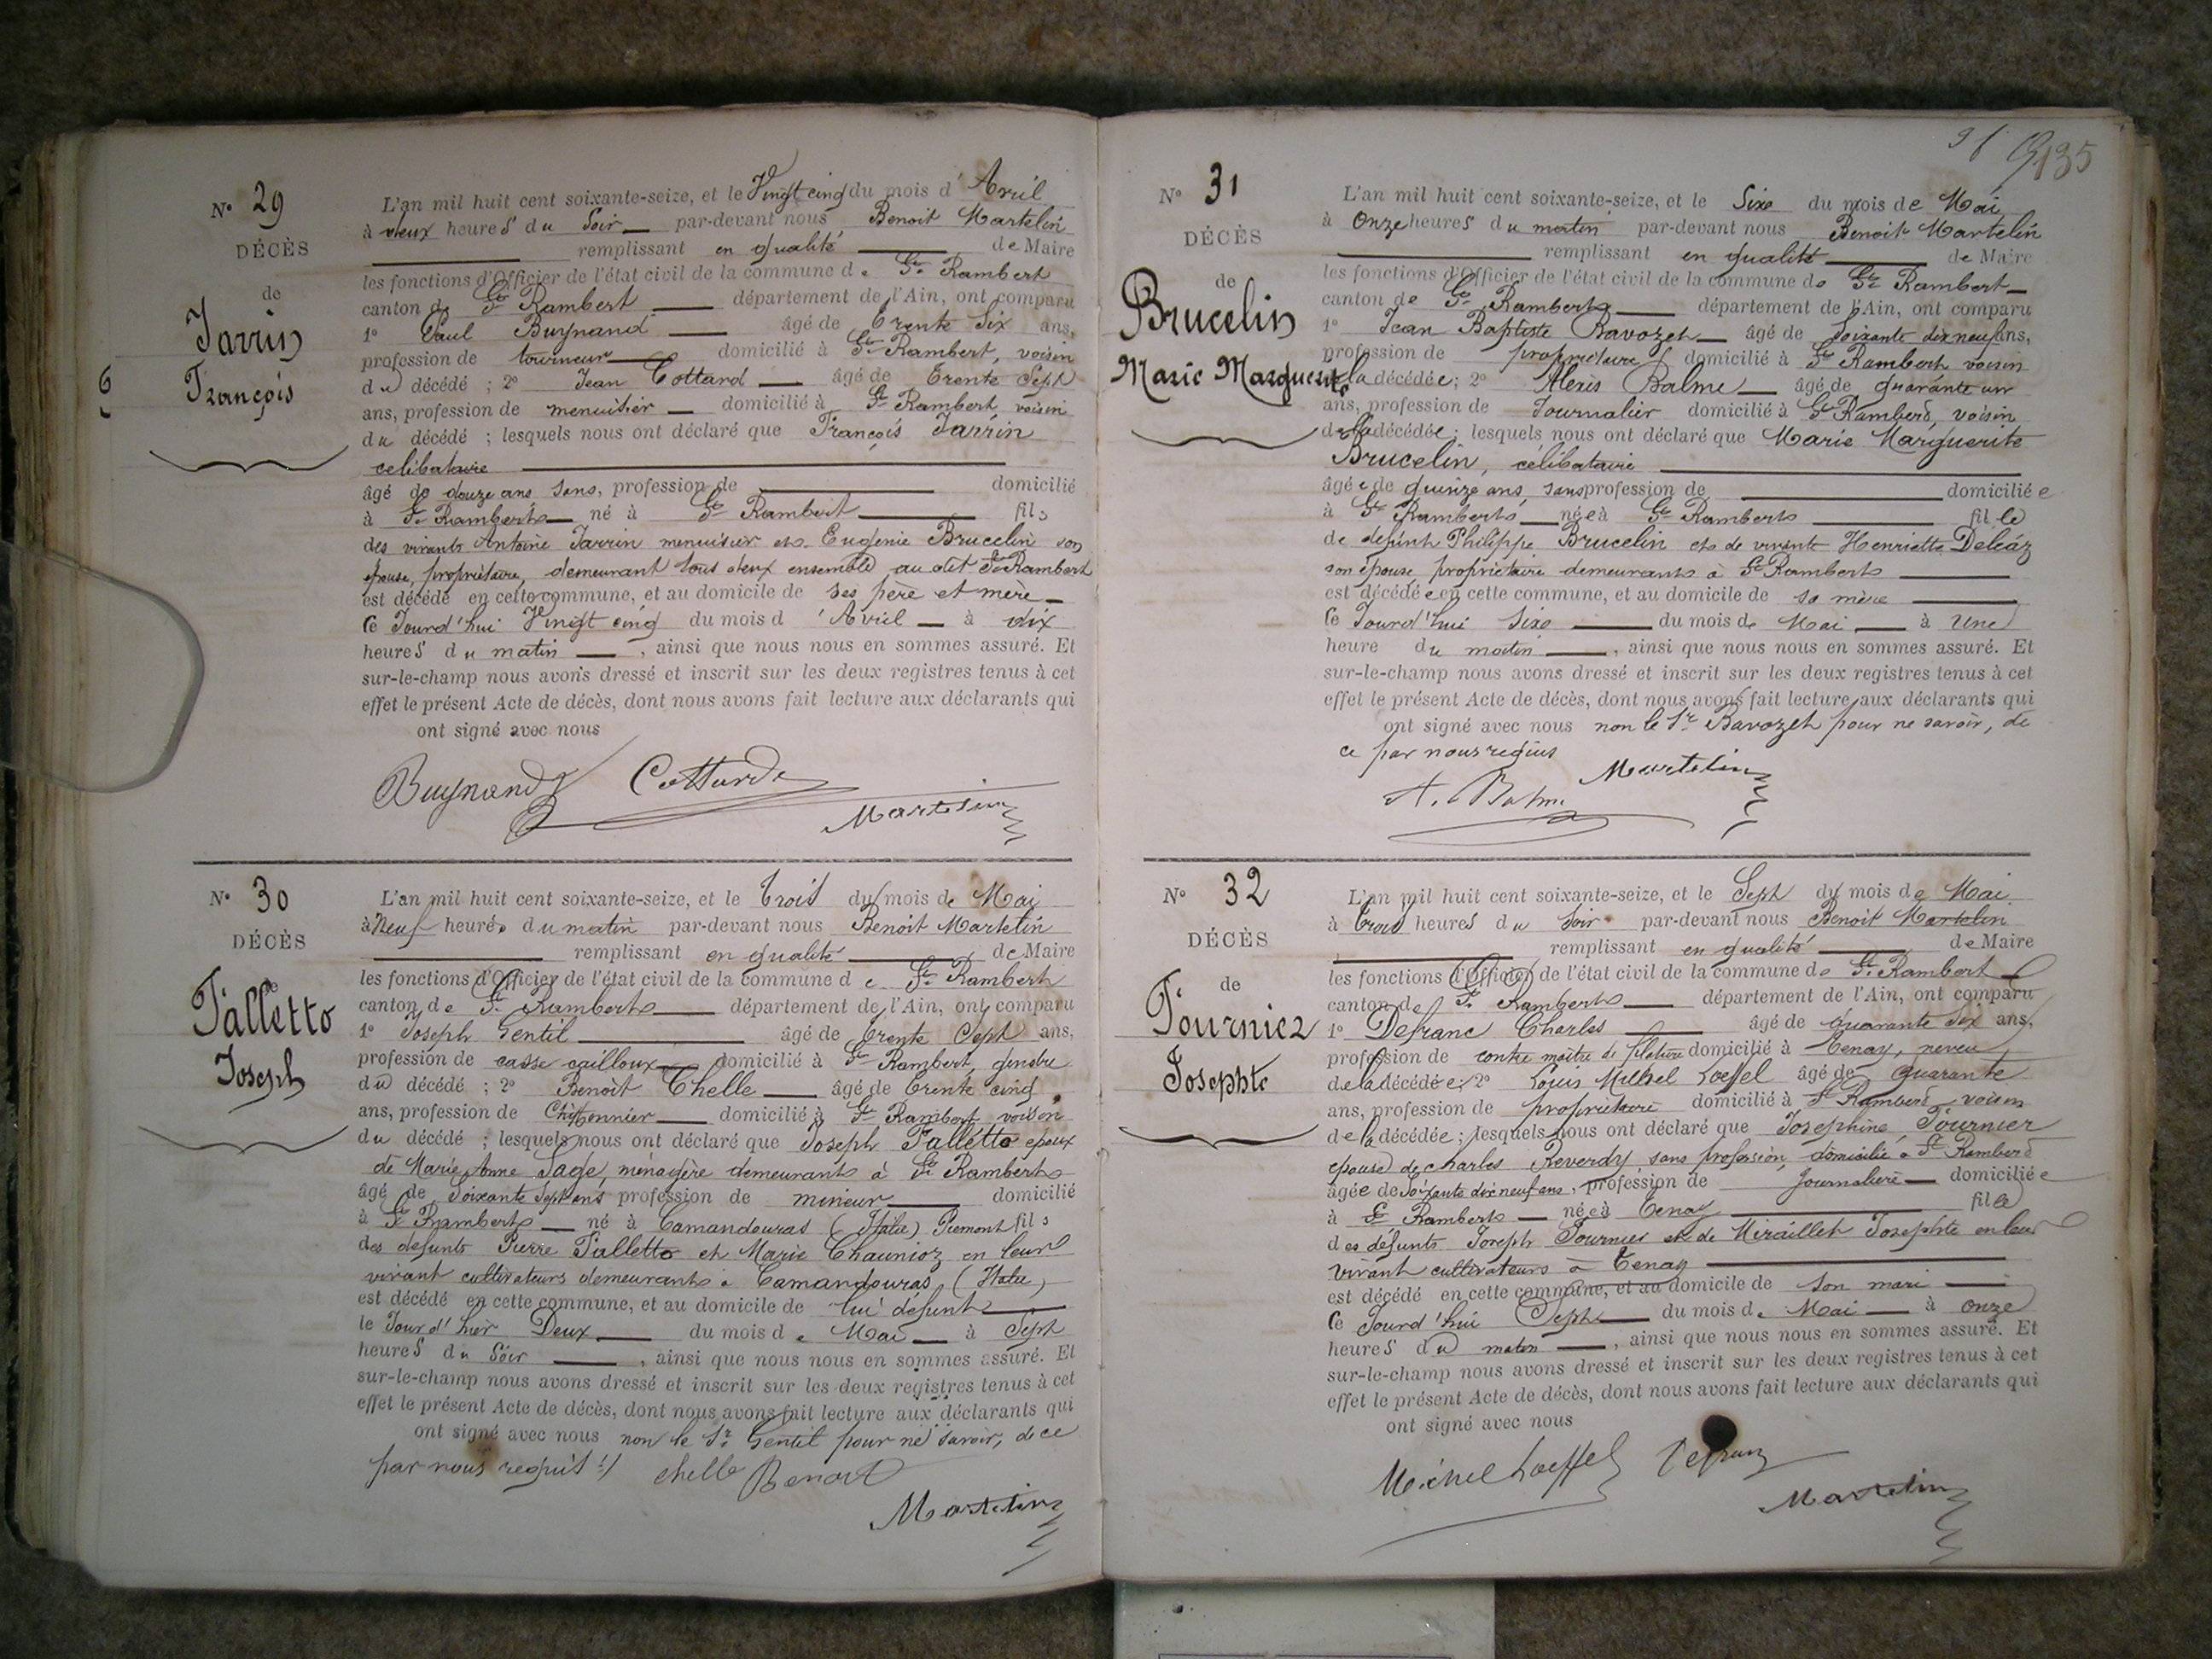 N° 29
DÉCÈS
de
Jarrin
François
6
L'an mil huit cent soixante-seize, et le Vingt cinq du mois d'Avril
à deux heures du Soir par-devant nous Benoit Martelin
remplissant en qualité de Maire
les fonctions d'Officier de l'état civil de la commune de St Rambert
canton de St Rambert département de l'Ain, ont comparu
1° Paul Buynand âgé de trente Six ans,
profession de tourneur domicilié à St Rambert, voisin
du décédé ; 2° Jean Cottard âgé de trente Sept
ans, profession de menuisier domicilié à St Rambert, voisin
du décédé ; lesquels nous ont déclaré que François Jarrin
celibataire
âgé de douze ans sans, profession de domicilié
à St Rambert né à St Rambert fils
des vivants Antoine Jarrin menuisier et Eugénie Brucelin son
épouse, propriétaire, demeurant tous deux ensemble au dit St Rambert
est décédé en cette commune, et au domicile de ses père et mère
ce Jourd'hui Vingt cinq du mois d'Avril à dix
heures du matin , ainsi que nous nous en sommes assuré. Et
sur-le-champ nous avons dressé et inscrit sur les deux registres tenus à cet
effet le présent Acte de décès, dont nous avons fait lecture aux déclarants qui
ont signé avec nous
Buynand Cottard
Martelin
N° 30
DÉCÈS
de
Falletto
Joseph
L'an mil huit cent soixante-seize, et le trois du mois de Mai
à Neuf heures du matin par-devant nous Benoit Martelin
remplissant en qualité de Maire
les fonctions d'Officier de l'état civil de la commune de St Rambert
canton de St Rambert département de l'Ain, ont comparu
1° Joseph Gentil âgé de trente Sept ans,
profession de casse cailloux domicilié à St Rambert, gendre
du décédé ; 2° Benoit Chelle âgé de trente cinq
ans, profession de Chiffonnier domicilié à St Rambert voisin
du décédé ; lesquels nous ont déclaré que Joseph Falletto epoux
de Marie Anne Sage, ménagère demeurant à St Rambert
âgé de Soixante Sept ans profession de mineur domicilié
à St Rambert né à Camandouras (Italie) Piemont fils
des defunts Pierre Falletto et Marie Chaunioz en leur
vivant cultivateurs demeurant à Camandouras, (Italie)
est décédé en cette commune, et au domicile de lui défunt
le Jour d'hier Deux du mois de Mai à Sept
heures du Soir , ainsi que nous nous en sommes assuré. Et
sur-le-champ nous avons dressé et inscrit sur les deux registres tenus à cet
effet le présent Acte de décès, dont nous avons fait lecture aux déclarants qui
ont signé avec nous non le Sr Gentil pour ne savoir, de ce
par nous requis :/ chelle Benoit
Martelin
135
N° 31
DÉCÈS
de
Brucelin
Marie Marguerite
L'an mil huit cent soixante-seize, et le Six du mois de Mai
à Onze heures du matin par-devant nous Benoit Martelin
remplissant en qualité de Maire
les fonctions d'Officier de l'état civil de la commune de St Rambert
canton de St Rambert département de l'Ain, ont comparu
1° Jean Baptiste Bavozet âgé de Soixante dix neuf ans,
profession de propriétaire domicilié à St Rambert voisin
de la décédée ; 2° Alexis Balme âgé de quarante un
ans, profession de Journalier domicilié à St Rambert, voisin
de la décédée ; lesquels nous ont déclaré que Marie Marguerite
Brucelin, célibataire
âgée de quinze ans, sans profession de domiciliée
à St Rambert née à St Rambert fille
de defunt Philippe Brucelin et de vivante Henriette Deléaz
son épouse, propriétaire demeurant à St Rambert
est décédée en cette commune, et au domicile de sa mère
ce Jourd'hui Six du mois de Mai à Une
heure du matin , ainsi que nous nous en sommes assuré. Et
sur-le-champ nous avons dressé et inscrit sur les deux registres tenus à cet
effet le présent Acte de décès, dont nous avons fait lecture aux déclarants qui
ont signé avec nous non le Sr Bavozet pour ne savoir, de
ce par nous requis
Martelin
A. Balme
N° 32
DÉCÈS
de
Fournier
Josephte
L'an mil huit cent soixante-seize, et le Sept du mois de Mai
à trois heures du Soir par-devant nous Benoit Martelin
remplissant en qualité de Maire
les fonctions d'Officier de l'état civil de la commune de St Rambert
canton de St Rambert département de l'Ain, ont comparu
1° Defranc Charles âgé de quarante Six ans,
profession de contre maître de filature domicilié à Tenay, neveu
de la décédée ; 2° Louis Michel Loeffel âgé de quarante
ans, profession de propriétaire domicilié à St Rambert voisin
de la décédée ; lesquels nous ont déclaré que Josephine Fournier
epouse de Charles Reverdy, sans profession, domicilié à St Rambert
âgée de Soixante dix neuf ans, profession de Journalière domiciliée
à St Rambert née à Tenay fille
des défunts Joseph Fournier et de Miraillet Josephte en leur
vivant cultivateurs à Tenay
est décédé en cette commune, et au domicile de son mari
ce Jourd'hui Sept du mois de Mai à onze
heures du matin , ainsi que nous nous en sommes assuré. Et
sur-le-champ nous avons dressé et inscrit sur les deux registres tenus à cet
effet le présent Acte de décès, dont nous avons fait lecture aux déclarants qui
ont signé avec nous
Michel Loeffel Defranc
Martelin